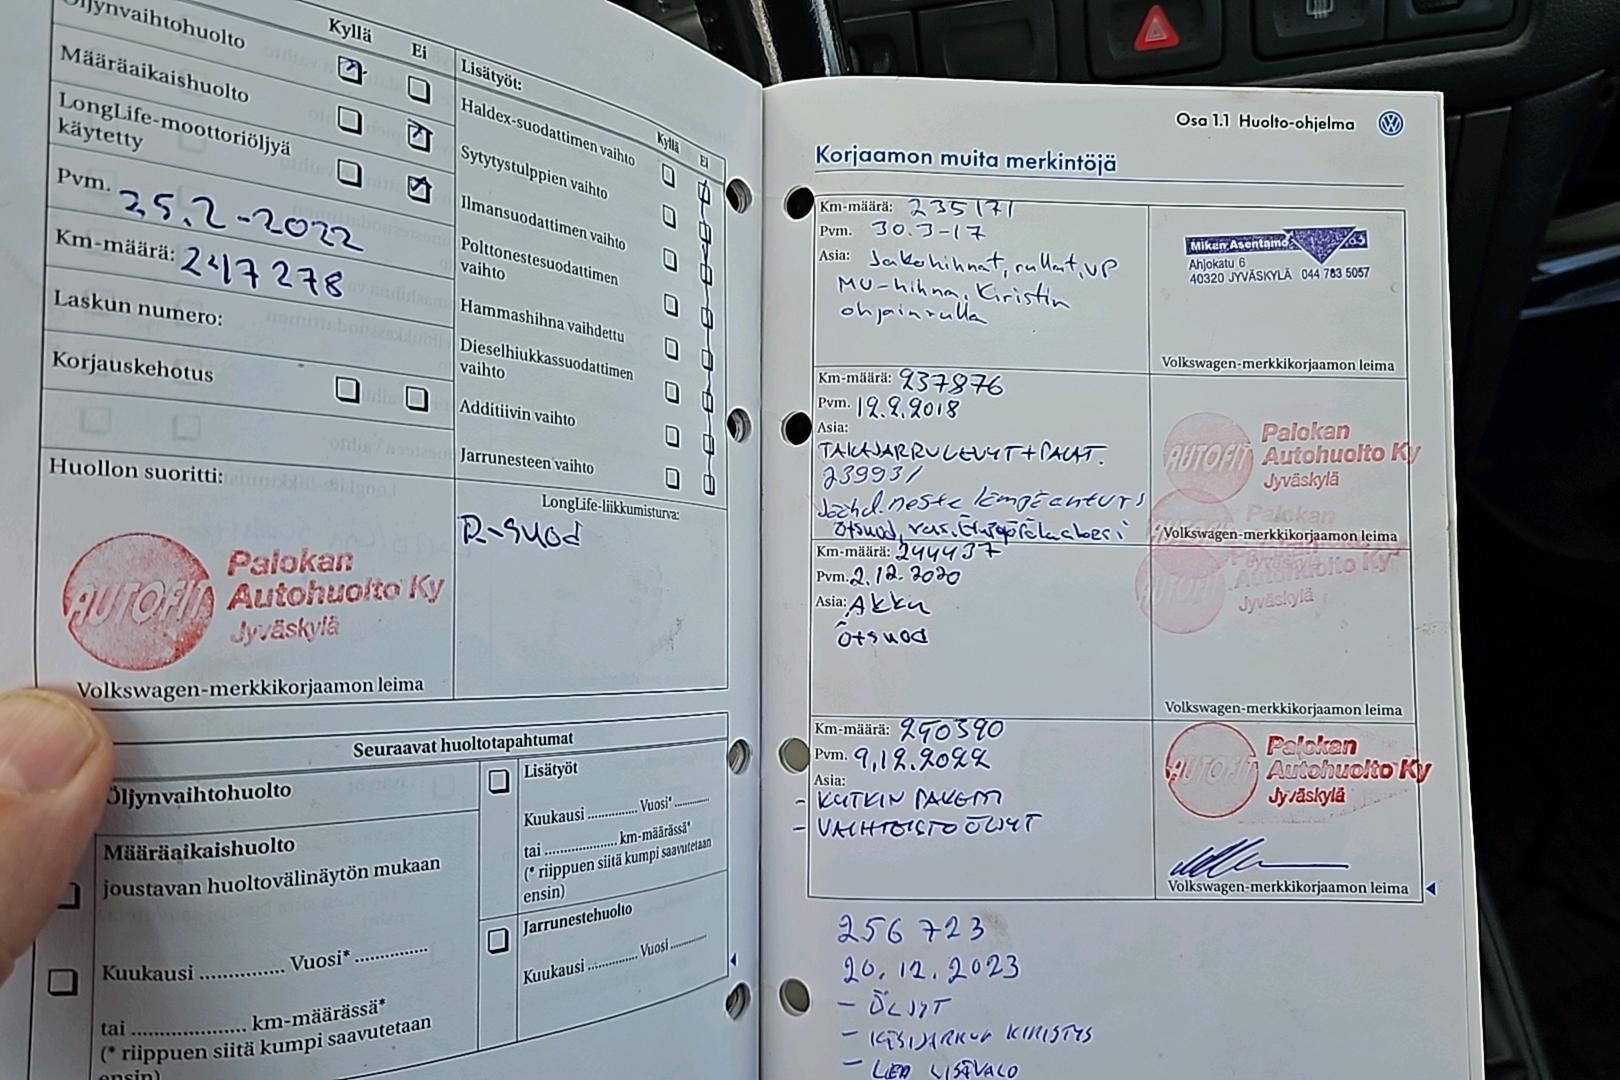 Öljynvaihtohuolto
Kyllä
Ei
Määräaikaishuolto
LongLife-moottoriöljyä
käytetty
Pvm. 25.2-2022
Km-määrä: 247 278
Laskun numero:
Korjauskehotus
Huollon suoritti:
AUTOFIT
Palokan
Autohuolto Ky
Jyväskylä
Volkswagen-merkkikorjaamon leima
Lisätyöt:
Kyllä
Ei
Haldex-suodattimen vaihto
Sytytystulppien vaihto
Ilmansuodattimen vaihto
Polttonestesuodattimen
vaihto
Hammashihna vaihdettu
Dieselhiukkassuodattimen
vaihto
Additiivin vaihto
Jarrunesteen vaihto
LongLife-liikkumisturva:
R-suod
Seuraavat huoltotapahtumat
Öljynvaihtohuolto
Määräaikaishuolto
joustavan huoltovälinäytön mukaan
Kuukausi ............... Vuosi* ...............
tai ...................... km-määrässä*
(* riippuen siitä kumpi saavutetaan
ensin)
Lisätyöt
Kuukausi ............... Vuosi* ...........
tai ..................... km-määrässä*
(* riippuen siitä kumpi saavutetaan
ensin)
Jarrunestehuolto
Kuukausi ............... Vuosi ...........
Osa 1.1 Huolto-ohjelma
Korjaamon muita merkintöjä
Km-määrä: 235171
Pvm. 30.3-17
Asia: Jakohihnat, rullat, VP
MU-hihna, Kiristin
ohjainrulla
Miken Asentamo
Ahjokatu 6
40320 JYVÄSKYLÄ 044 783 5057
Volkswagen-merkkikorjaamon leima
Km-määrä: 237876
Pvm. 12.2.2018
Asia:
TAKAJARRULEVYT + PALAT.
239931
Jäähd.neste lämpöanturi
ötsuod,
AUTOFIT
Palokan
Autohuolto Ky
Jyväskylä
Volkswagen-merkkikorjaamon leima
Km-määrä: 244437
Pvm. 2.12.2020
Asia: Akku
Ötsuod
Volkswagen-merkkikorjaamon leima
Km-määrä: 250390
Pvm. 9.12.2022
Asia:
- KYTKIN PAKETTI
- VAIHTEISTOÖLJYT
AUTOFIT
Palokan
Autohuolto Ky
Jyväskylä
Volkswagen-merkkikorjaamon leima
256 723
20.12.2023
- ÖLJYT
- KÄSIJARRUN KIRISTYS
- LED LISÄVALO